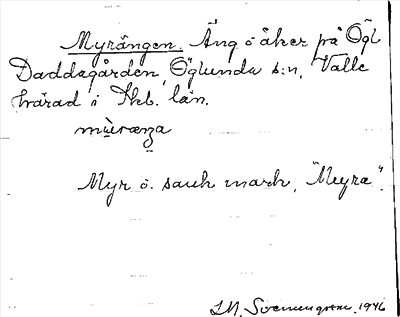 Myrängen. Äng o åker på Ögl
Daddagården, Öglunda s:n, Valle
härad i Skb. län.
Myr o. sank mark, "Meyra".
1946